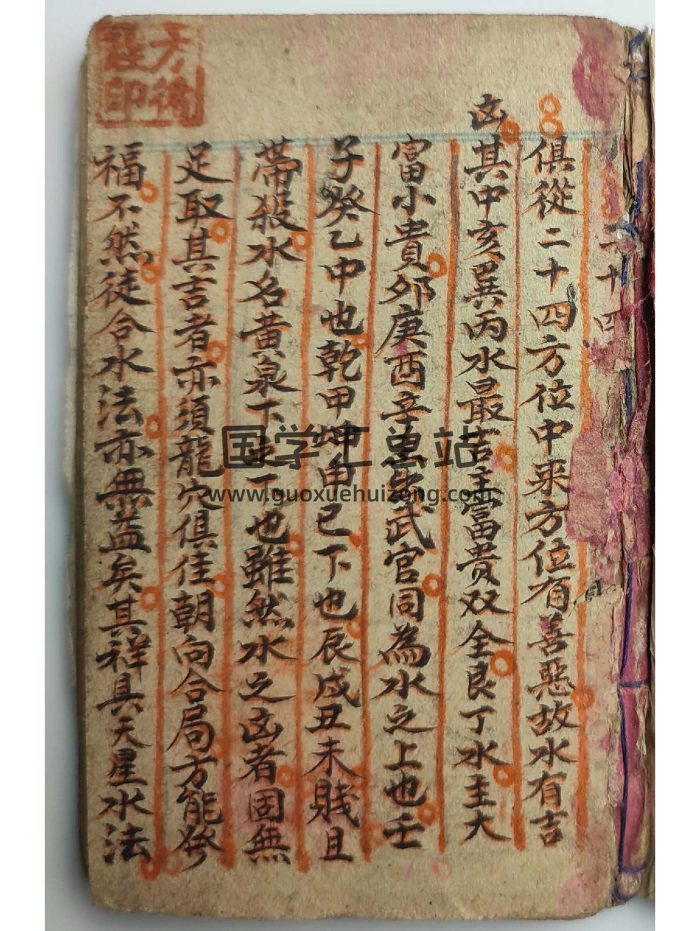 二十四
俱從二十四方位中來方位有善惡故水有吉
凶其中亥巽丙水最吉主富貴双全艮丁水主大
富小貴卯庚酉辛皂武官同為水之上也壬
子癸乙中也乾甲坤申巳下也辰戌丑未賤且
帶殺水名黃泉下之下也雖然水之凶者固無
足取其吉者亦須龍穴俱佳朝向合局方能發
福不然徒合水法亦無益矣其詳具天星水法
印
国学汇总站
www.guoxuehuizong.com